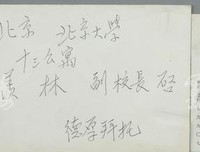 北京 北京大學
十三公寓
黄 林 副校長 啓
德孚拜托